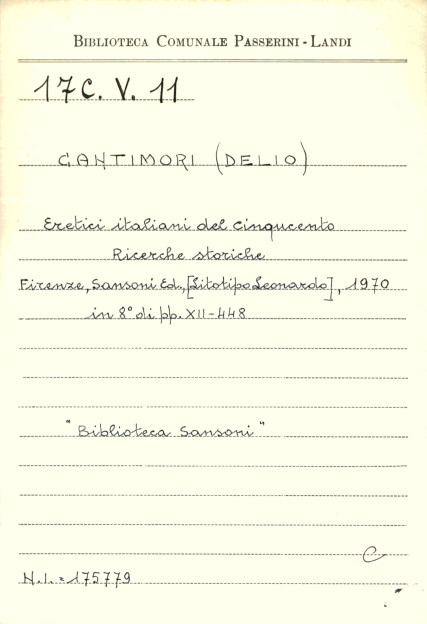 BIBLIOTECA COMUNALE PASSERINI - LANDI
17C. V. 11
CANTIMORI (DELIO)
Eretici italiani del Cinqucento
Ricerche storiche
Firenze, Sansoni Ed., [Litotipo Leonardo], 1970
in 8° di pp. XII-448
"Biblioteca Sansoni"
C
N.I. = 175779